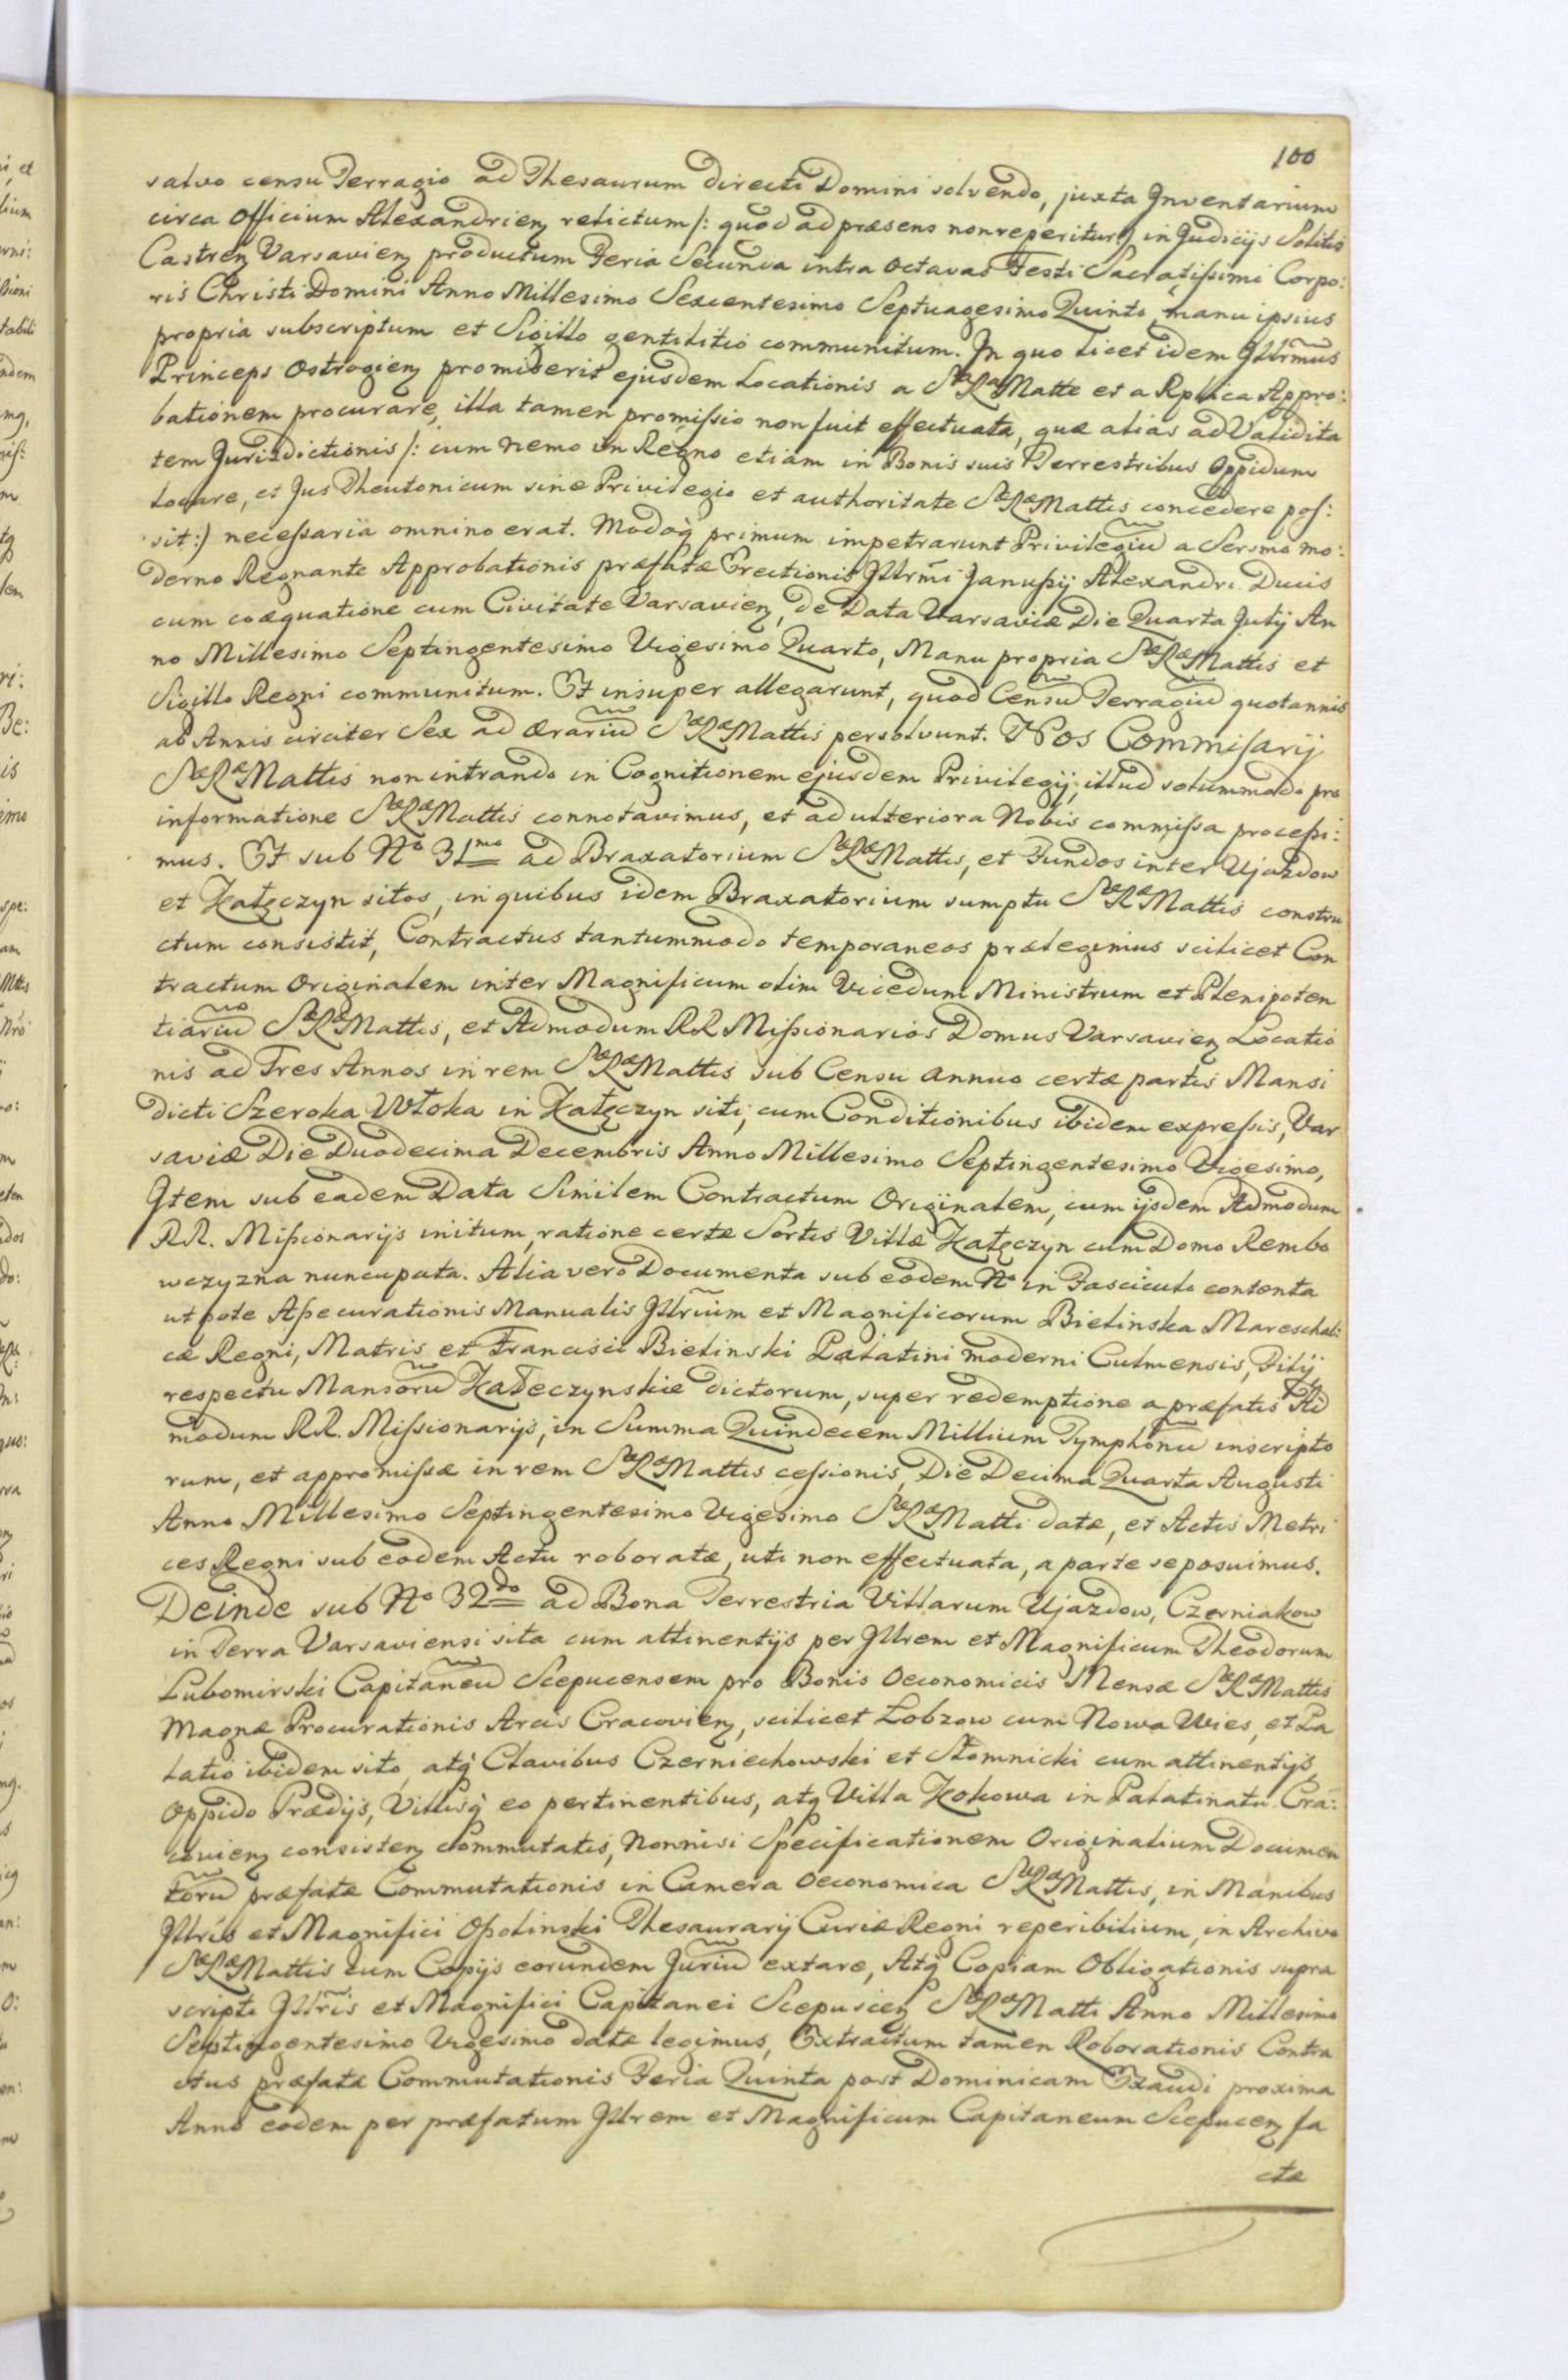 100
salvo censu Terragio ad Thesaurum directi Domini solvendo, juxta Inventarium
circa Officium Alexandrien relictum /: quod ad præsens non reperitur :/ in Judicijs Solitis
Castren Varsavien productum Feria Secunda intra Octavas Festi Sacratissimi Corpo:
ris Christi Domini Anno Millesimo Sexcentesimo Septuagesimo Quinto, manu ipsius
propria subscriptum et Sigillo gentilitio communitum. In quo licet idem Illrmus
Princeps Ostrogien promiserit ejusdem Locationis a SæRæMatte et a Rplica Appro:
bationem procurare, illa tamen promissio non fuit effectuata, quæ alias ad Validita
tem Jurisdictionis /: cum nemo in Regno etiam in Bonis suis Terrestribus Oppidum
locare, et Jus Theutonicum sine Privilegio et authoritate SæRæMattis concedere pos:
sit :/ necessaria omnino erat. Modoq primum impetrarunt Privilegiu a Sersmo mo:
derno Regnante Approbationis præfatæ Erectionis Illrmi Janussij Alexandri Ducis
cum coæquatione cum Civitate Varsavien, de Data Varsaviæ Die Quarta Julij An
no Millesimo Septingentesimo Vigesimo Quarto, Manu propria SæRæMattis et
Sigillo Regni communitum. Et insuper allegarunt, quod Censu Terragiu quotannis
ab Annis circiter Sex ad Ærariu SæRæMattis persolvunt. Nos Commissarij
SæRæMattis non intrando in Cognitionem ejusdem Privilegij, illud solummodo pro
informatione SæRæMattis connotavimus, et ad ulteriora Nobis commissa processi:
mus. Et sub No 31mo ad Braxatorium SæRæMattis, et Fundos inter Ujazdow
et Kałęczyn sitos, in quibus idem Braxatorium sumptu SæRæMattis constru
ctum consistit, Contractus tantummodo temporaneos prælegimus scilicet Con
tractum Originalem inter Magnificum olim Vicedum Ministrum et Plenipoten
tiariu SæRæMattis, et Admodum RR Missionarios Domus Varsavien Locatio
nis ad Tres Annos in rem SæRæMattis sub Censu annuo certæ partis Mansi
dicti Szeroka Włoka in Kałęczyn siti, cum Conditionibus ibidem expressis, Var
saviæ Die Duodecima Decembris Anno Millesimo Septingentesimo Vigesimo,
Item sub eadem Data Similem Contractum Originalem, cum ijsdem Admodum
RR. Missionarijs initum, ratione certæ Sortis Villæ Kałęczyn cum Domo Rembo
wczyzna nuncupata. Alia vero Documenta sub eodem No in Fasciculo contenta
ut pote Assecurationis Manualis Illrium et Magnificorum Bielinska Mareschal:
cæ Regni, Matris et Francisci Bielinski Palatini moderni Culmensis, Filij
respectu Mansoru Kałeczynskie dictorum, super redemptione a præfatis Ad
modum RR. Missionarijs, in Summa Quindecem Millium Tymphonu inscripto
rum, et appromissæ in rem SæRæMattis cessionis, Die Decima Quarta Augusti
Anno Millesimo Septingentesimo Vigesimo SæRæMatti datæ, et Actis Metri
ces Regni sub eodem Actu roboratæ, uti non effectuata, a parte seposuimus.
Deinde sub No 32do ad Bona Terrestria Villarum Ujazdow, Czerniakow
in Terra Varsaviensi sita cum attinentijs per Illrem et Magnificum Theodorum
Lubomirski Capitaneu Scepucensem pro Bonis Oeconomicis Mensæ SæRæMattis
Magnæ Procurationis Arcis Cracovien, scilicet Łobzow cum Nowa Wies, et Pa
latio ibidem sito, atq Clavibus Czerniechowski et Słomnicki cum attinentijs
Oppido Prædijs, Villisq eo pertinentibus, atq Villa Kokowa in Palatinatu Cra:
covien consisten Commutatis, Nonnisi Specificationem Originalium Documen
toru præfatæ Commutationis in Camera Oeconomica SæRæMattis, in Manibus
Illris et Magnifici Ossolinski Thesaurarij Curiæ Regni reperibilium, in Archivo
SæRæMattis cum Copijs eorundem Juriu extare, Atq Copiam Obligationis supra
scripti Illris et Magnifici Capitanei Scepuscien SæRæMatti Anno Millesimo
Septingentesimo Vigesimo datæ legimus, Extractum tamen Roborationis Contra
ctus præfatæ Commutationis Feria Quinta post Dominicam Exaudi proxima
Anno eodem per præfatum Illrem et Magnificum Capitaneum Scepucen fa
ctæ